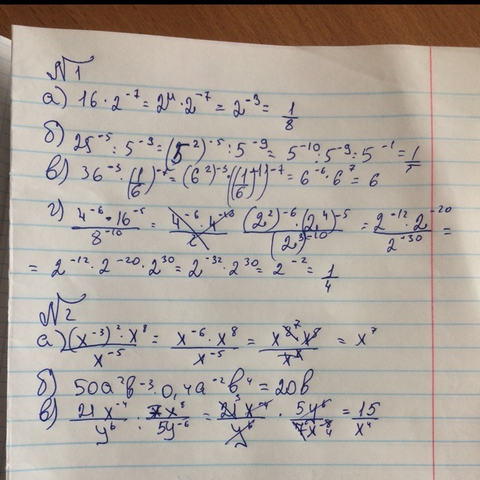 №1
а) 16·2⁻⁷ = 2⁴·2⁻⁷ = 2⁻³ = 1/8
б) 25⁻⁵ : 5⁻⁹ = (5²)⁻⁵ : 5⁻⁹ = 5⁻¹⁰ : 5⁻⁹ : 5⁻¹ = 1/5
в) 36⁻³·(1/6)⁻⁷ = (6²)⁻³·((1/6)⁻¹)⁻⁷ = 6⁻⁶·6⁷ = 6
г) 4⁻⁶·16⁻⁵/8⁻¹⁰ = (2²)⁻⁶·(2⁴)⁻⁵/(2³)⁻¹⁰ = 2⁻¹²·2⁻²⁰/2⁻³⁰ =
= 2⁻¹²·2⁻²⁰·2³⁰ = 2⁻³²·2³⁰ = 2⁻² = 1/4
№2
а) (x⁻³)²·x⁸/x⁻⁵ = x⁻⁶·x⁸/x⁻⁵ = = x⁷
б) 50a²b⁻³·0,4a⁻²b⁴ = 20b
в) 21x⁻⁴/y⁶ : /5y⁻⁶ = 21x⁻⁴/y⁶ · 5y⁶/ = 15/x⁴